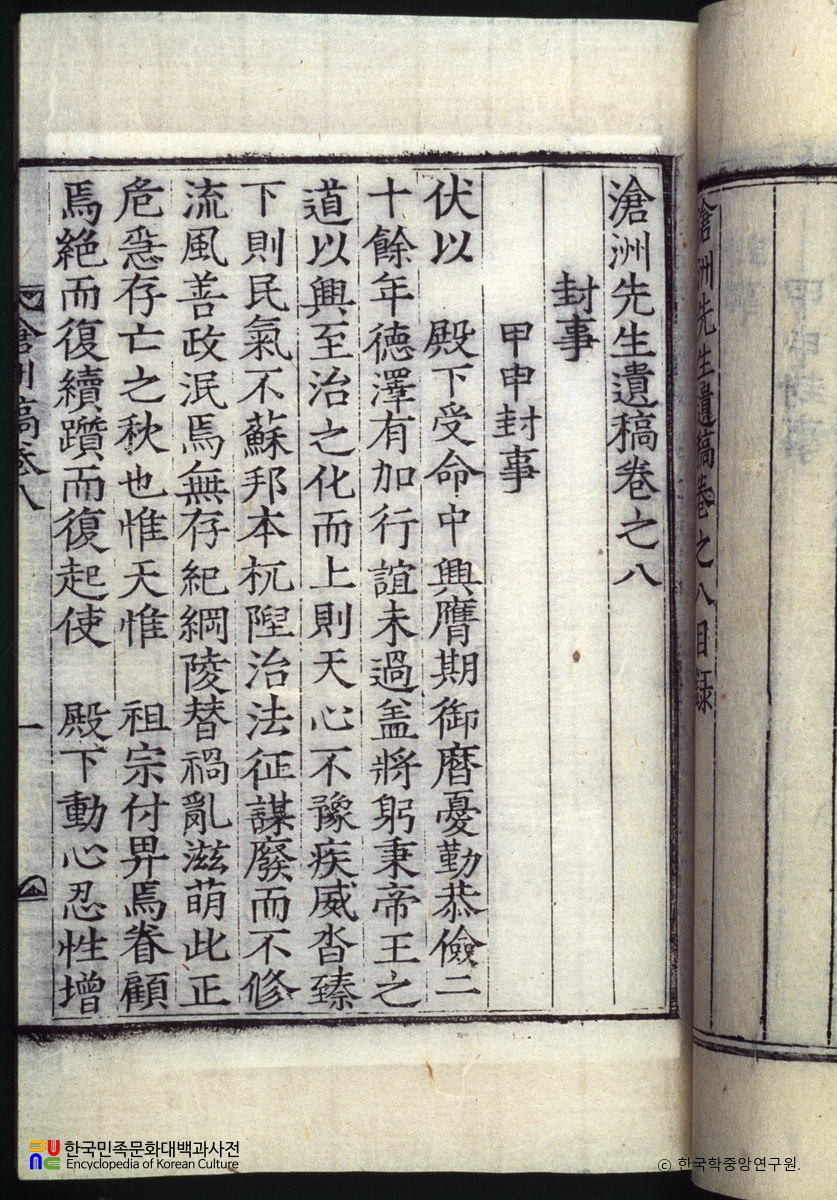 滄洲先生遺稿卷之八
封事
甲申封事
伏以 殿下受命中興膺期御曆憂勤恭儉二
十餘年德澤有加行誼未過盖將躬秉帝王之
道以興至治之化而上則天心不豫疾威沓臻
下則民氣不蘇邦本杌隉治法征謀廢而不修
流風善政泯焉無存紀綱陵替禍亂滋萌此正
危急存亡之秋也惟天惟 祖宗付畀焉眷顧
焉絶而復續躓而復起使 殿下動心忍性增
滄洲稿卷八
一
滄洲先生遺稿卷之八目録
甲申封事
한국민족문화대백과사전
Encyclopedia of Korean Culture
© 한국학중앙연구원.